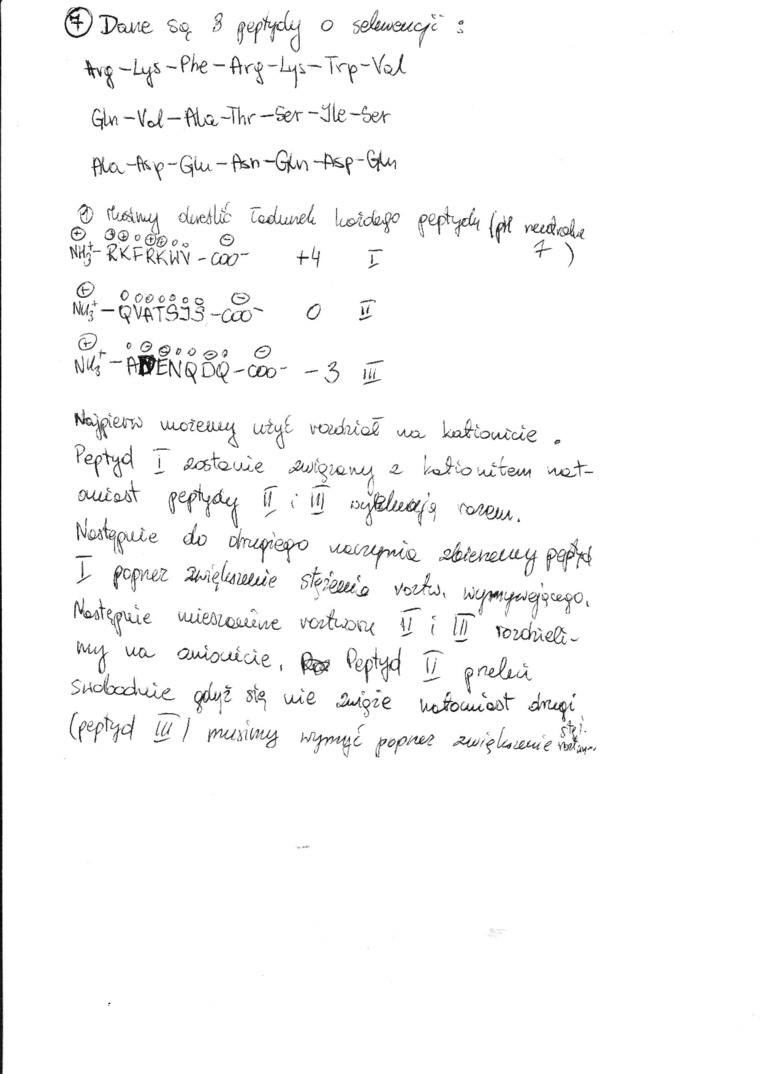 ⑦ Dane są 3 peptydy o sekwencji :
Arg-Lys-Phe-Arg-Lys-Trp-Val
Gln-Val-Ala-Thr-Ser-Ile-Ser
Ala-Asp-Glu-Asn-Gln-Asp-Gln
① Musimy określić ładunek każdego peptydu (pH neutralne
7 )
⊕ ⊕⊕o⊕⊕oo ⊖
NH3+- RKFRKWV - COO- +4 I
⊕ ooooooo ⊖
NH3+ - QVATSIS - COO- 0 II
⊕ o⊖⊖oo⊖o ⊖
NH3+ - ADENQDQ - COO- -3 III
Najpierw możemy użyć rozdział na kationicie.
Peptyd I zostanie związany z kationitem nat-
omiast peptydy II i III wyeluują razem.
Następnie do drugiego naczynia zbieramy peptyd
I poprzez zwiększenie stężenia roztw. wymywającego.
Następnie mieszaninę roztworu II i III rozdzieli-
my na anionicie. Peptyd II przeleci
swobodnie gdyż się nie zwiąże natomiast drugi
(peptyd III) musimy wymyć poprzez zwiększenie stęż.